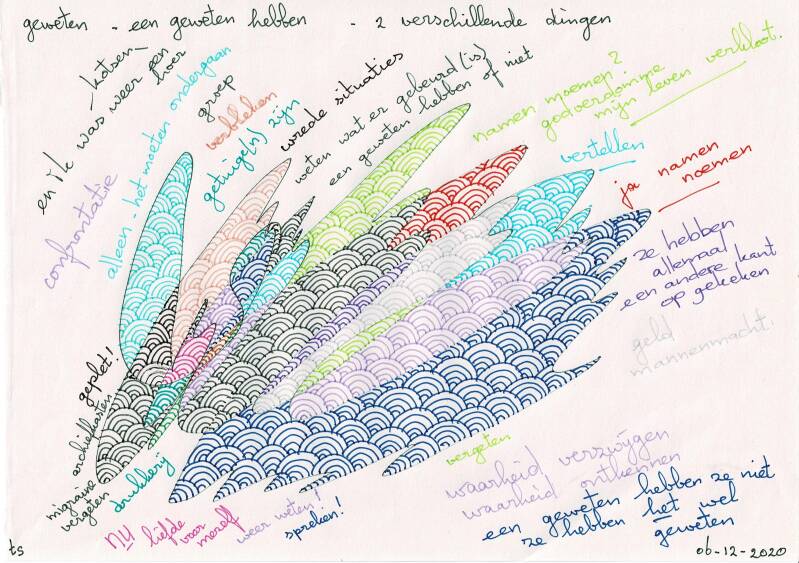 geweten - een geweten hebben - 2 verschillende dingen
kotsen
en ik was weer een hoer
alleen - het moeten ondergaan
groep
verbleken
getuige(n) zijn
wrede situaties
weten wat er gebeurd (is)
een geweten hebben of niet
namen noemen?
godverdomme
mijn leven verkloot.
vertellen
ja namen
noemen
confrontatie
ze hebben
allemaal
een andere kant
op gekeken
geld
mannenmacht.
geplet!
archiefkasten
migraine
vergeten
drukkerij
NU liefde
voor
mezelf
weer weten!
spreken!
vergeten
waarheid verzwijgen
waarheid ontkennen
een geweten hebben ze niet
ze hebben het wel
geweten
ts
06-12-2020